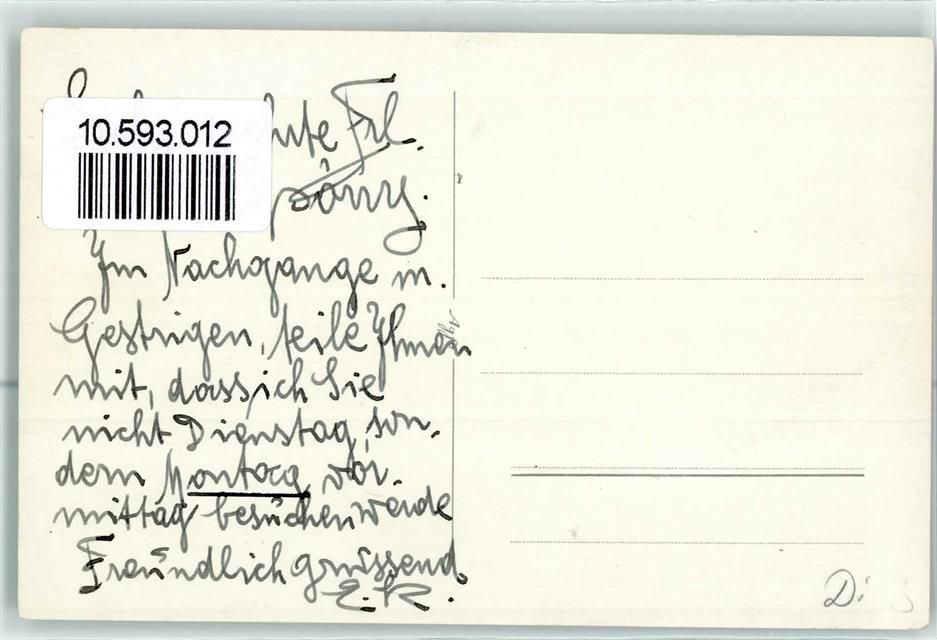 10.593.012
Frl.
Im Nachgange m.
Gestrigen, teile Ihnen
mit, dass ich Sie
nicht Dienstag, son-
dern Montag vor-
mittag besuchen werde
Freundlich grüssend
E. R.
Di